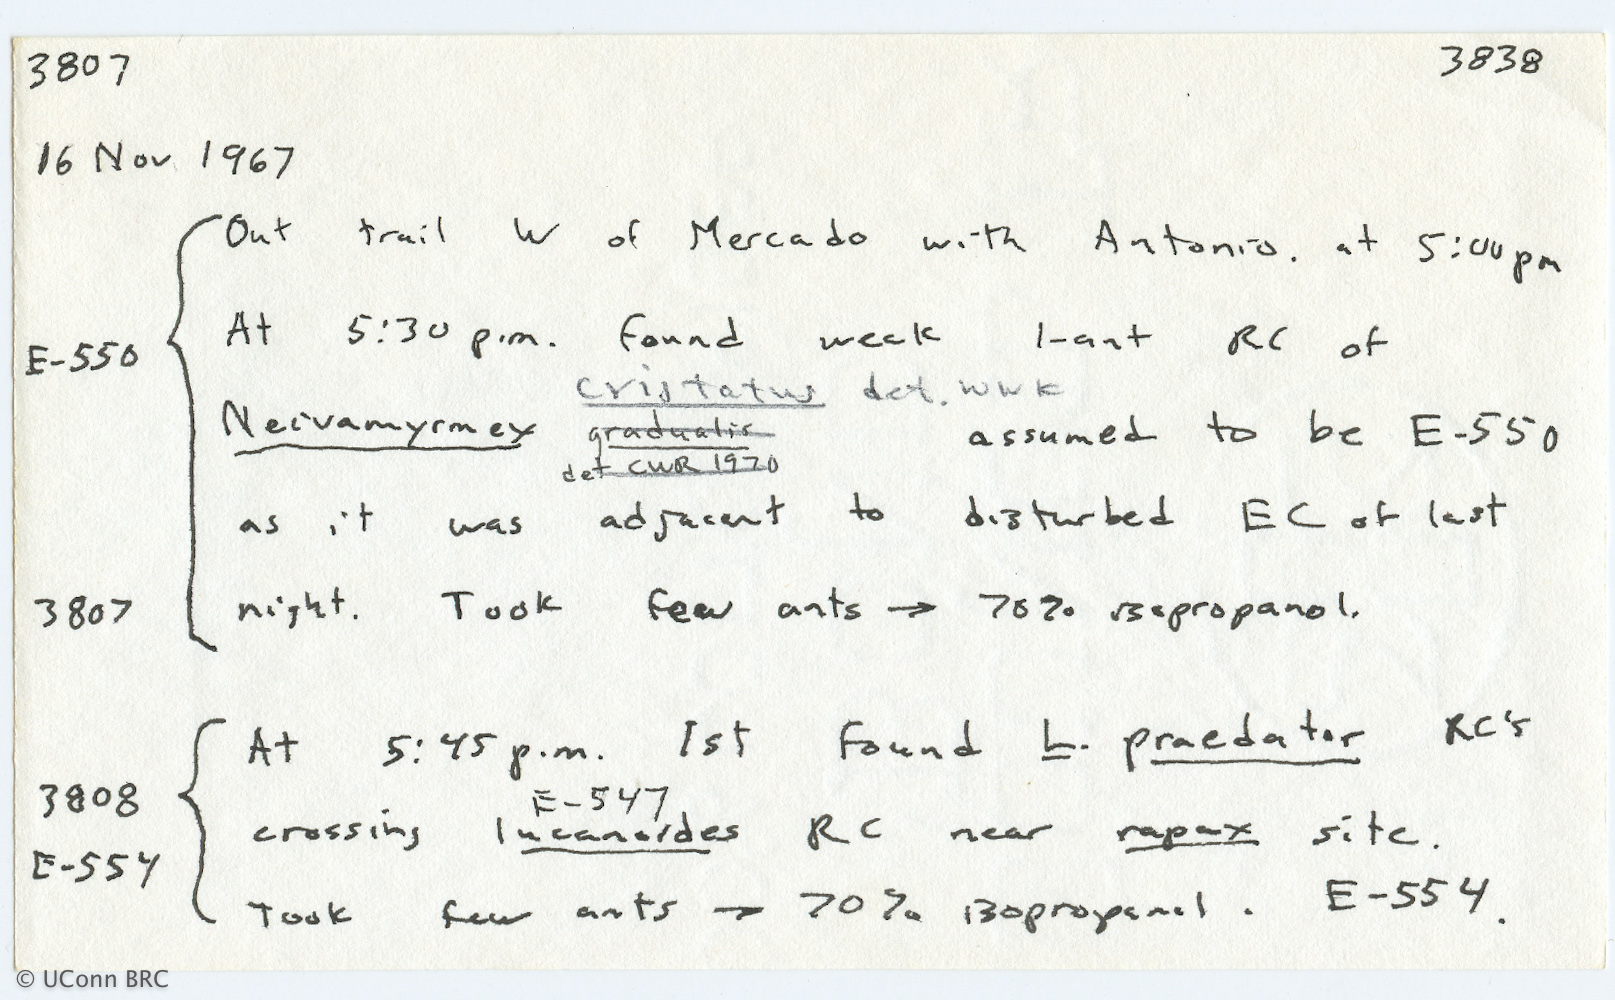 3807 3838
16 Nov 1967
Out trail W of Mercado with Antonio. at 5:00 pm
At 5:30 p.m. found weak 1-ant RC of
E-550
cristatus det. WWK
Neivamyrmex gradualis assumed to be E-550
det CWR 1970
as it was adjacent to disturbed EC of last
3807 night. Took few ants → 70% isopropanol.
At 5:45 p.m. 1st found L. praedator RC's
3808
E-547
crossing lucanoides RC near rapax site.
E-554
Took few ants → 70% isopropanol. E-554.
© UConn BRC